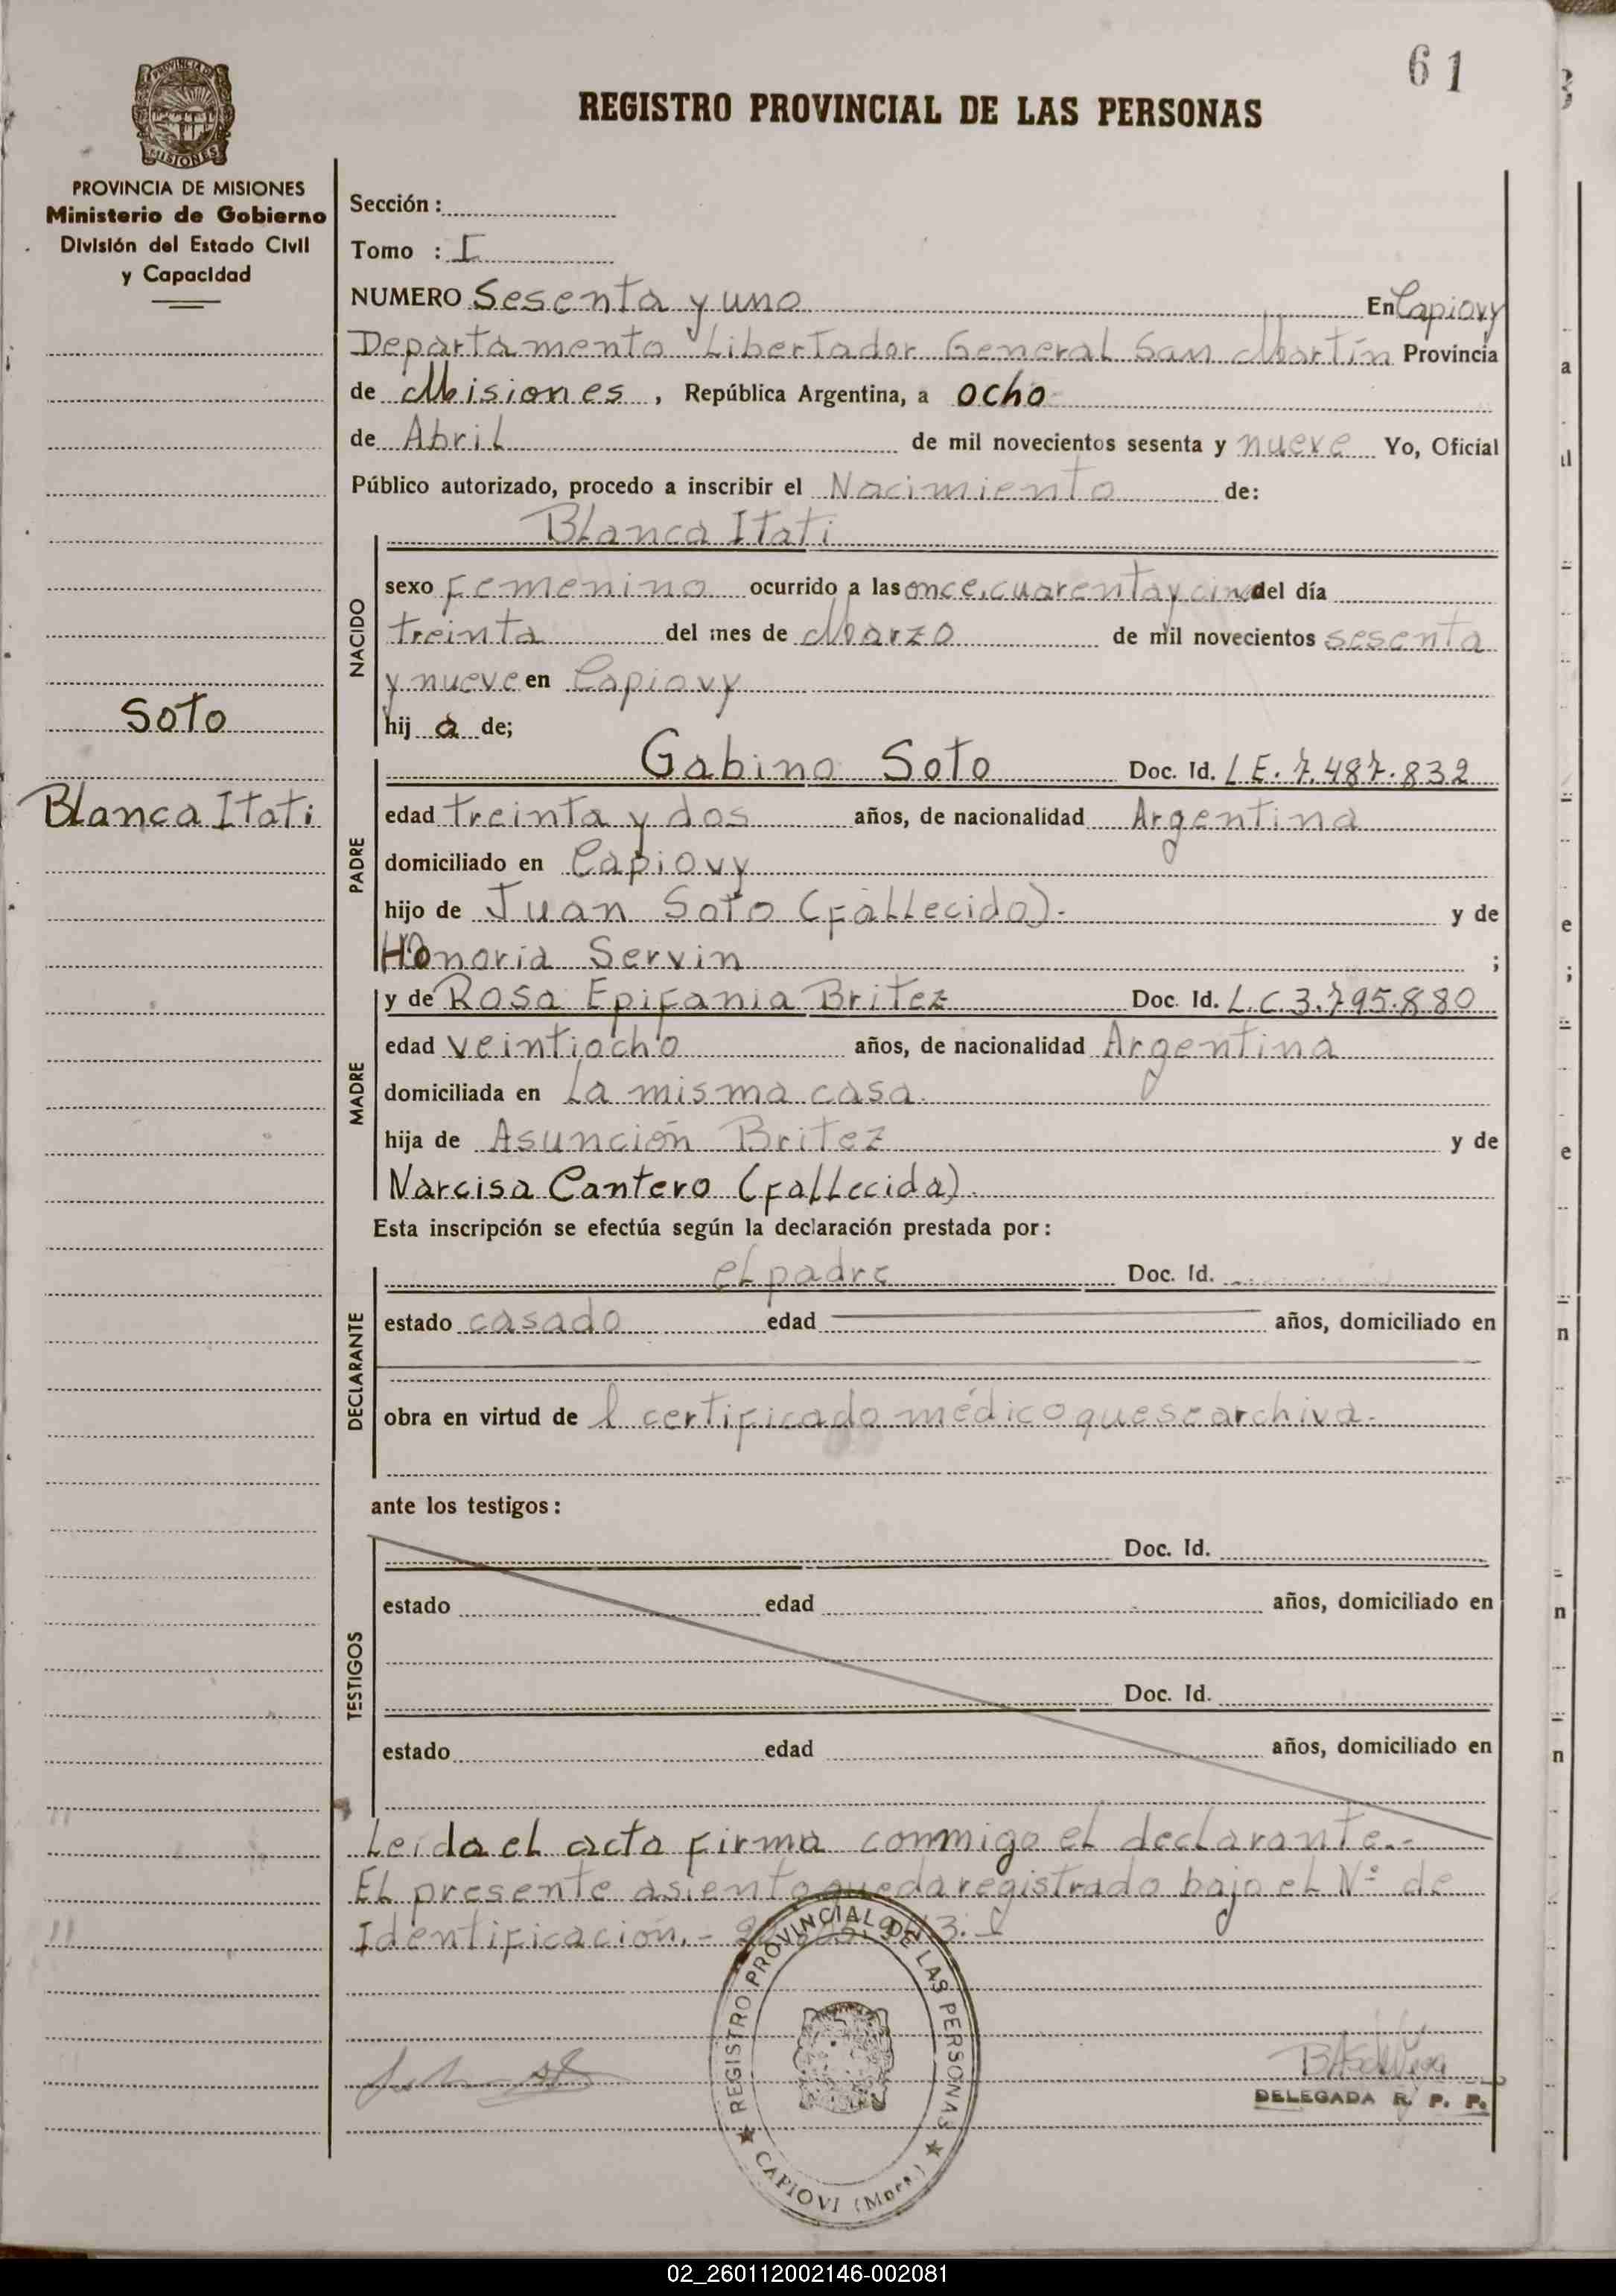 61
REGISTRO PROVINCIAL DE LAS PERSONAS
PROVINCIA DE MISIONES
MISIONES
PROVINCIA DE MISIONES
Ministerio de Gobierno
División del Estado Civil
y Capacidad
Soto
Blanca Itati
Sección :
Tomo : I
NUMERO Sesenta y uno En Capiovy
Departamento Libertador General San Martín Provincia
de Misiones , República Argentina, a ocho
de Abril de mil novecientos sesenta y nueve Yo, Oficial
Público autorizado, procedo a inscribir el Nacimiento de:
Blanca Itati
NACIDO
sexo femenino ocurrido a las once, cuarenta y cinco del día
treinta del mes de Marzo de mil novecientos sesenta
y nueve en Capiovy
hij a de;
PADRE
Gabino Soto Doc. Id. LE. 7.487.832
edad treinta y dos años, de nacionalidad Argentina
domiciliado en Capiovy
hijo de Juan Soto (fallecido).- y de
Honoria Servin ;
MADRE
y de Rosa Epifania Britez Doc. Id. L.C 3.795.880
edad veintiocho años, de nacionalidad Argentina
domiciliada en La misma casa.
hija de Asunción Britez y de
Narcisa Cantero (fallecida).
Esta inscripción se efectúa según la declaración prestada por :
DECLARANTE
el padre Doc. Id.
estado casado edad años, domiciliado en
obra en virtud de l certificado médico que se archiva.-
ante los testigos :
TESTIGOS
Doc. Id.
estado edad años, domiciliado en
Doc. Id.
estado edad años, domiciliado en
Leída el acta firma conmigo el declarante.-
El presente asiento queda registrado bajo el Nº de
Identificación.-
REGISTRO PROVINCIAL DE LAS PERSONAS
CAPIOVI (Mnes.)
DELEGADA R. P. P.
02_260112002146-002081